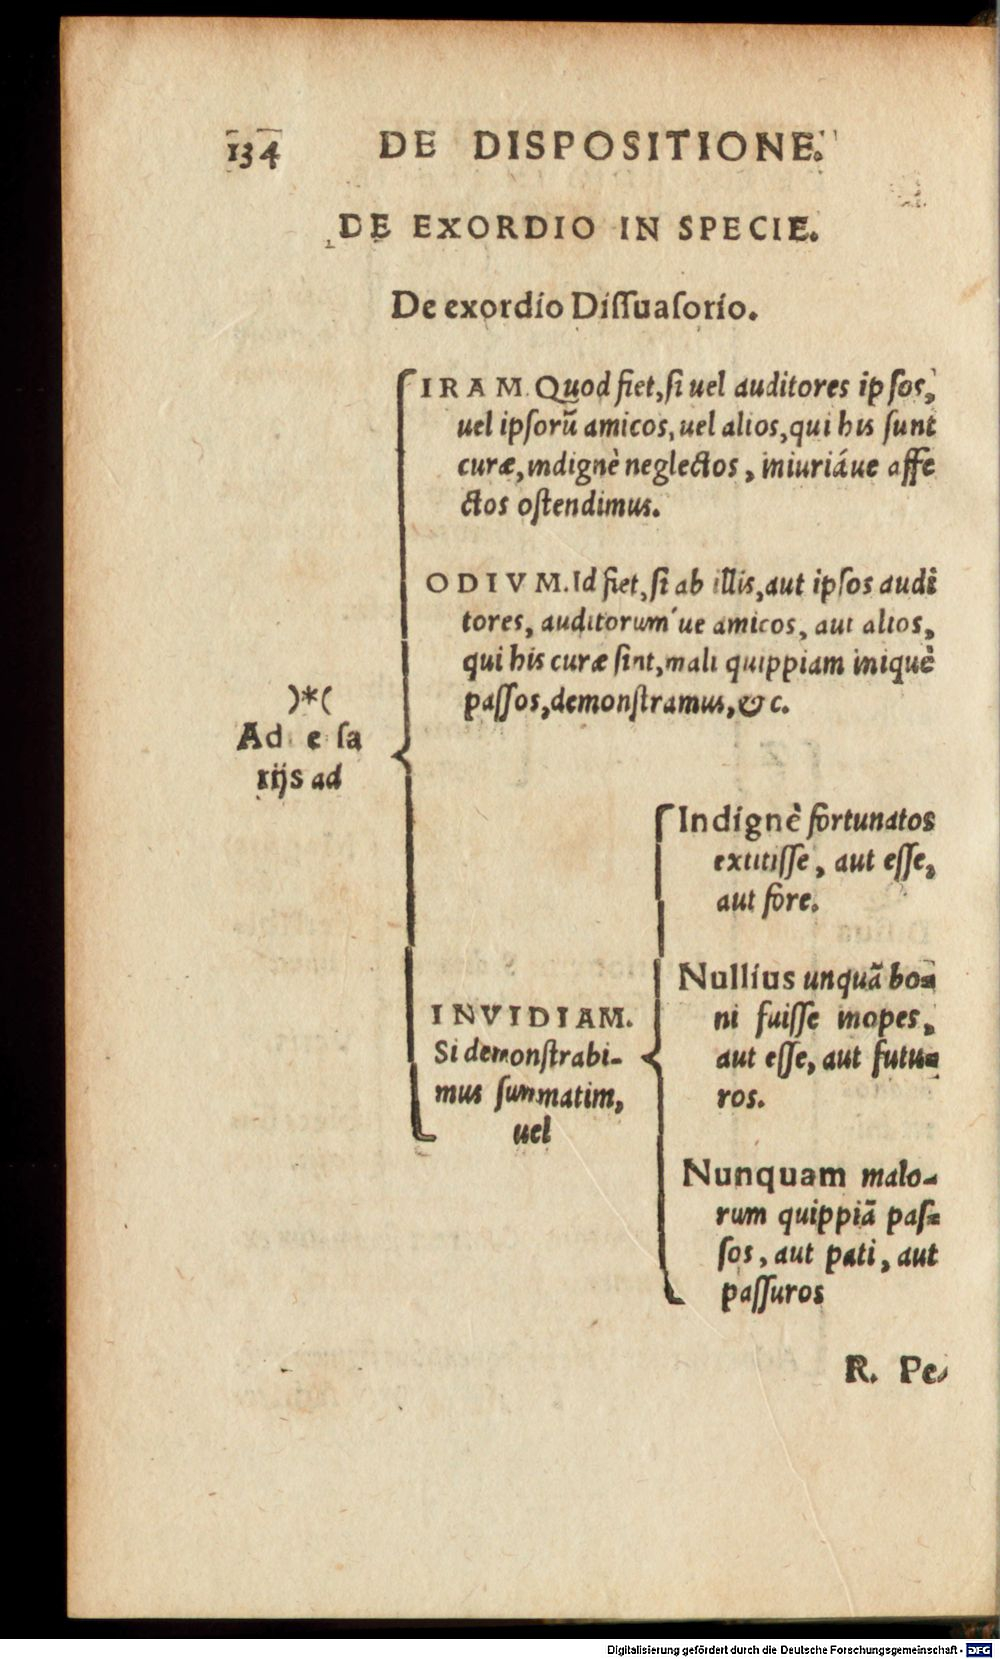 134 DE DISPOSITIONE.
DE EXORDIO IN SPECIE.
De exordio Diſſuaſorio.
)*(
Ad e ſa
rijs ad
IRAM. Quod fiet, ſi uel auditores ipſos,
uel ipſorũ amicos, uel alios, qui his ſunt
curæ, indignè neglectos, iniuriáue affe
ctos oſtendimus.
ODIVM. Id fiet, ſi ab illis, aut ipſos audi
tores, auditorum´ue amicos, aut alios,
qui his curæ ſint, mali quippiam iniquè
paſſos, demonſtramus, & c.
INVIDIAM.
Si demonſtrabi-
mus ſummatim,
uel
Indignè fortunatos
extitiſſe, aut eſſe,
aut fore.
Nullius unquã bo=
ni fuiſſe inopes,
aut eſſe, aut futu=
ros.
Nunquam malo-
rum quippiã paſ=
ſos, aut pati, aut
paſſuros
R. Pe-
Digitalisierung gefördert durch die Deutsche Forschungsgemeinschaft - DFG